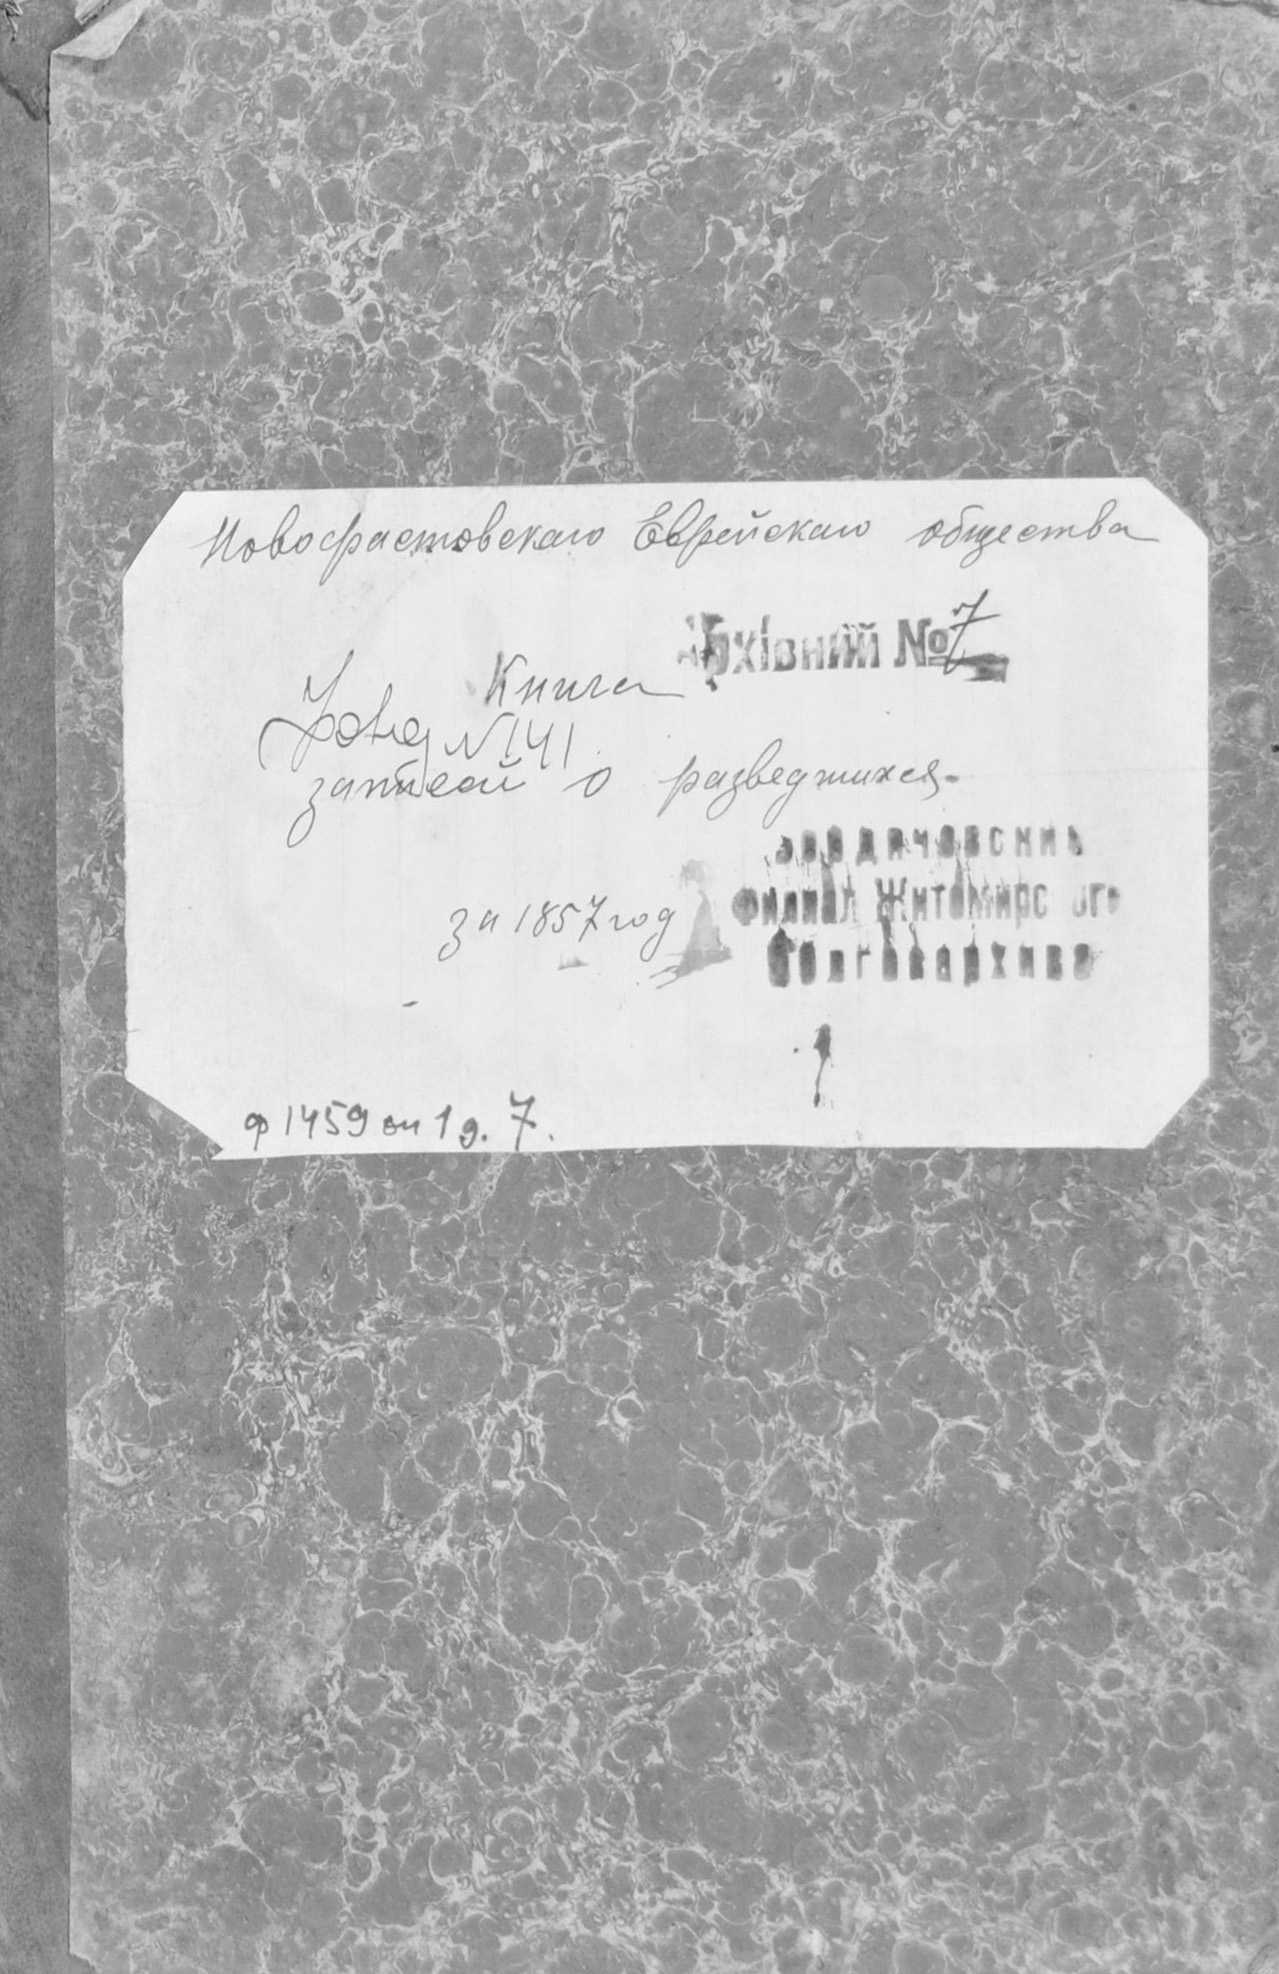 Новофастовскаго Еврейскаго общества
Архівний № 7
Книга
Фонд № 141
записи о разведшихся.
за 1857 год
Бердичевский
Филиал Житомирского
Облгосархива
ф 1459 оп 1 д. 7.